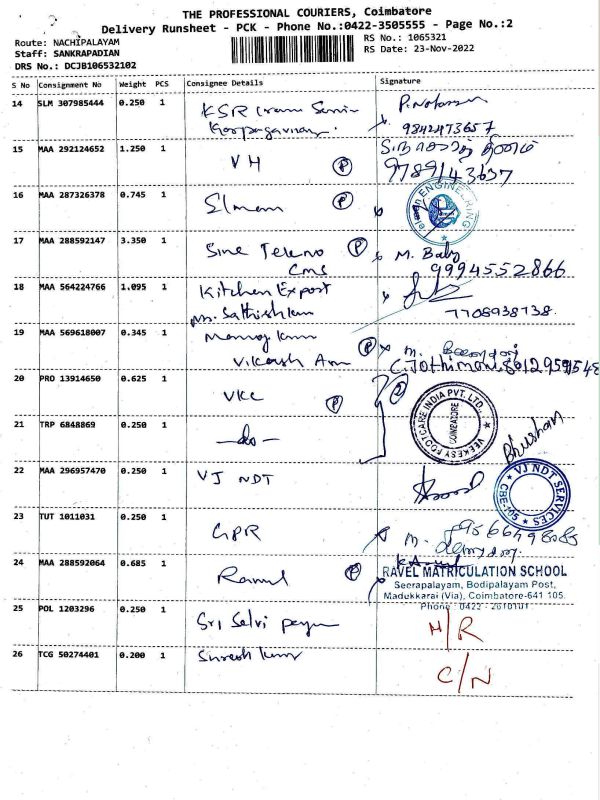 THE PROFESSIONAL COURIERS, Coimbatore
Delivery Runsheet - PCK - Phone No.:0422-3505555 - Page No.:2
Route: NACHIPALAYAM
RS No.: 1065321
Staff: SANKRAPADIAN
RS Date: 23-Nov-2022
DRS No.: DCJB106532102
S No Consignment No Weight PCS Consignee Details Signature
14 SLM 307985444 0.250 1 KSR
9842473657
15 MAA 292124652 1.250 1 VH P
9789143637
16 MAA 287326378 0.745 1 P
ENGINEERING
17 MAA 288592147 3.350 1 P M. Baby
CMS 9994552866
18 MAA 564224766 1.095 1 Kitchen Export
Mr. Sathishkumar 7708938738
19 MAA 569618007 0.345 1 P
Vikash C. Jothimani
20 PRO 13914650 0.625 1 VKC P 2
VEEKESY FOOTCARE INDIA PVT. LTD.,
COIMBATORE
21 TRP 6848869 0.250 1 -do- Bhushan
22 MAA 296957470 0.250 1 VJ NDT
VJ NDT SERVICES
CBE-105
23 TUT 1011031 0.250 1 GPR
24 MAA 288592064 0.685 1 P
RAVEL MATRICULATION SCHOOL
Seerapalayam, Bodipalayam Post,
Madukkarai (Via), Coimbatore-641 105.
Phone : 0422 - 2610101
25 POL 1203296 0.250 1 Sri Selvi H/R
26 TCG 50274401 0.200 1 Suresh kumar C/N